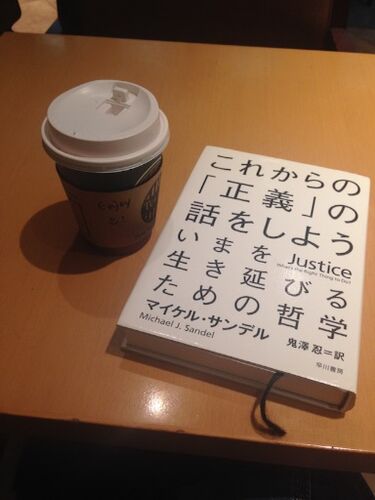 Enjoy
これからの
「正義」の
話をしよう
Justice
What's the Right Thing to Do?
いまを
生き延びる
ための哲学
マイケル・サンデル
Michael J. Sandel
鬼澤 忍=訳
早川書房